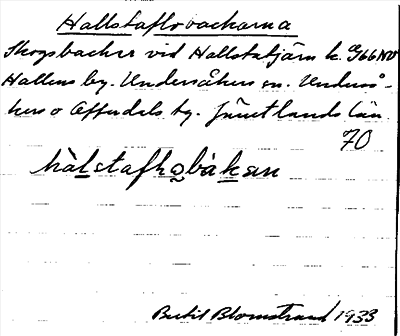 Hallstaflobackarna
Skogsbacker vid Hallstatjärn k. G66NV
Hallens by. Undersåkers sn. Unders-
åkers o Offerdals tg. Jämtlands län.
70
hàlstafḷọbàkan
Bertil Blomstrand 1933